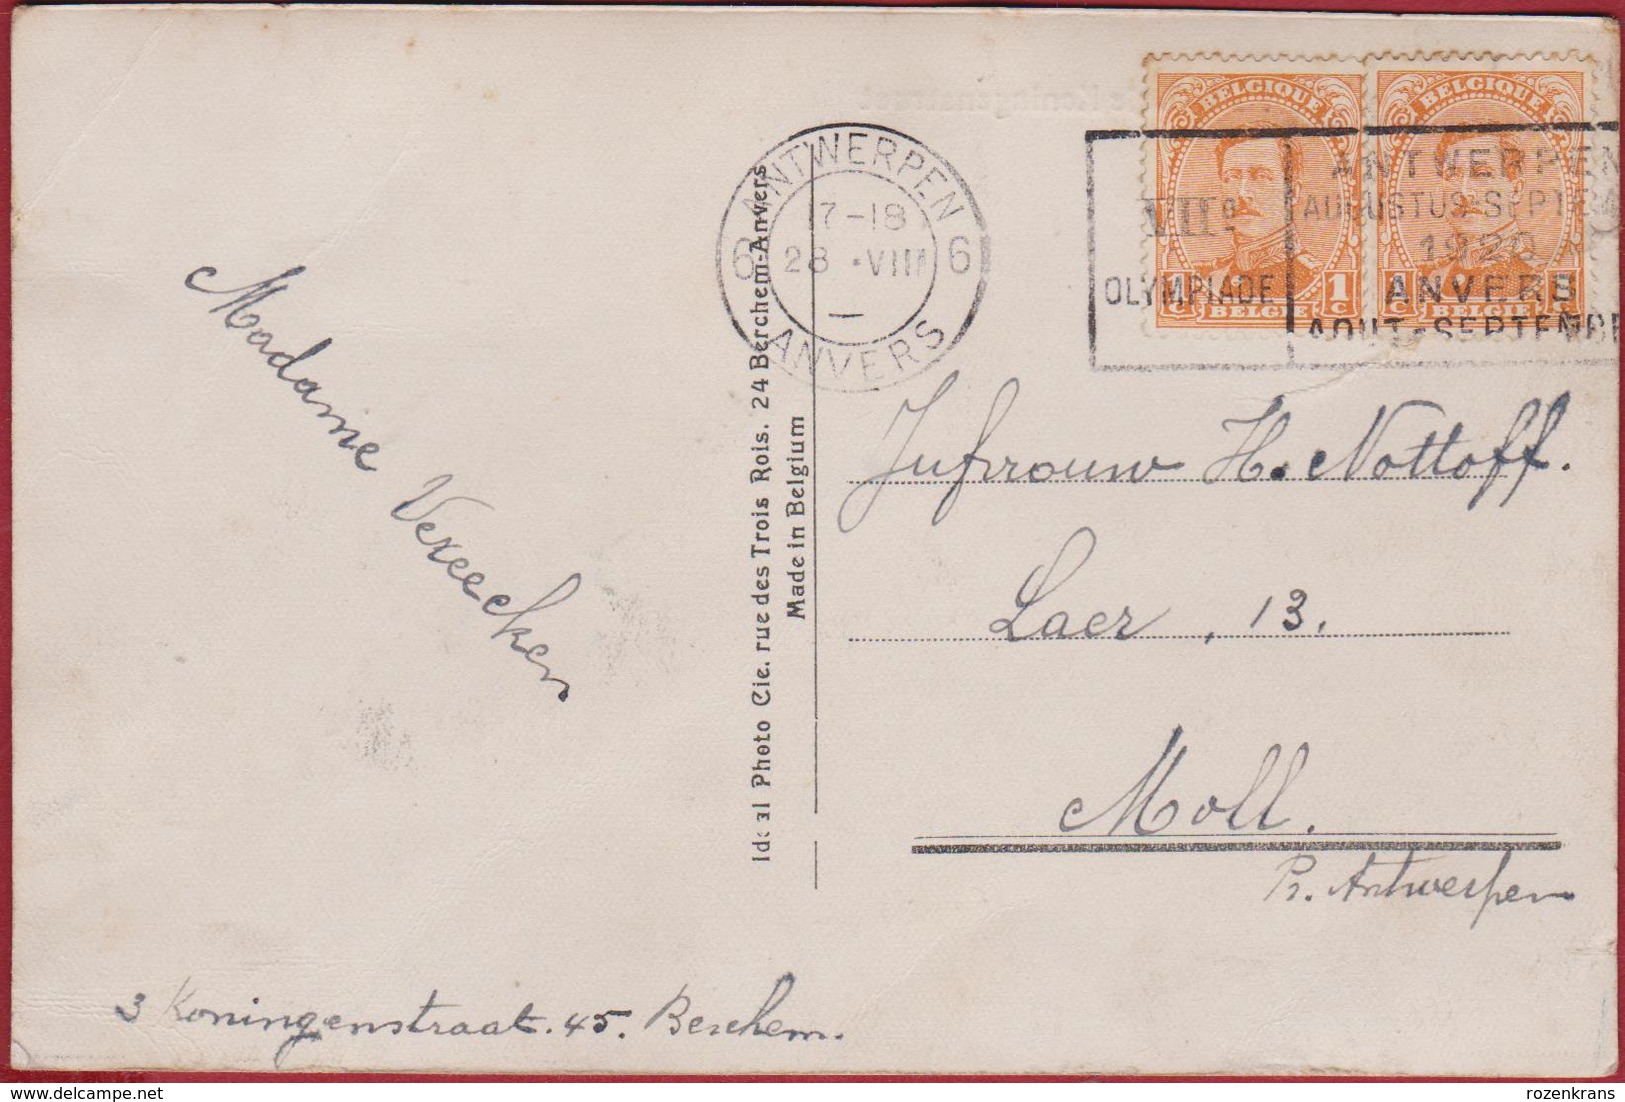 BELGIQUE
BELGIQUE
1 C 1 C
BELGIË
BELGIË
ANTWERPEN
17-18
6 28 · VIII 6
ANVERS
VIIe
OLYMPIADE
ANTWERPEN
AUGUSTUS-SEPTEMB
1920
ANVERS
AOUT-SEPTEMBRE
Madame
Vereecken
3 Koningenstraat. 45. Berchem.
Ideal Photo Cie. rue des Trois Rois. 24 Berchem-Anvers
Made in Belgium
Jufrouw H. Nottoff.
Laer, 13.
Moll.
Pr. Antwerpen
delcampe.net
rozenkrans